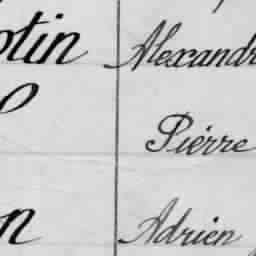 otin Alexandr
Piérre
n Adrien